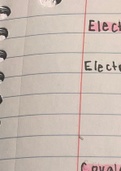 Elect
Electr
Coval